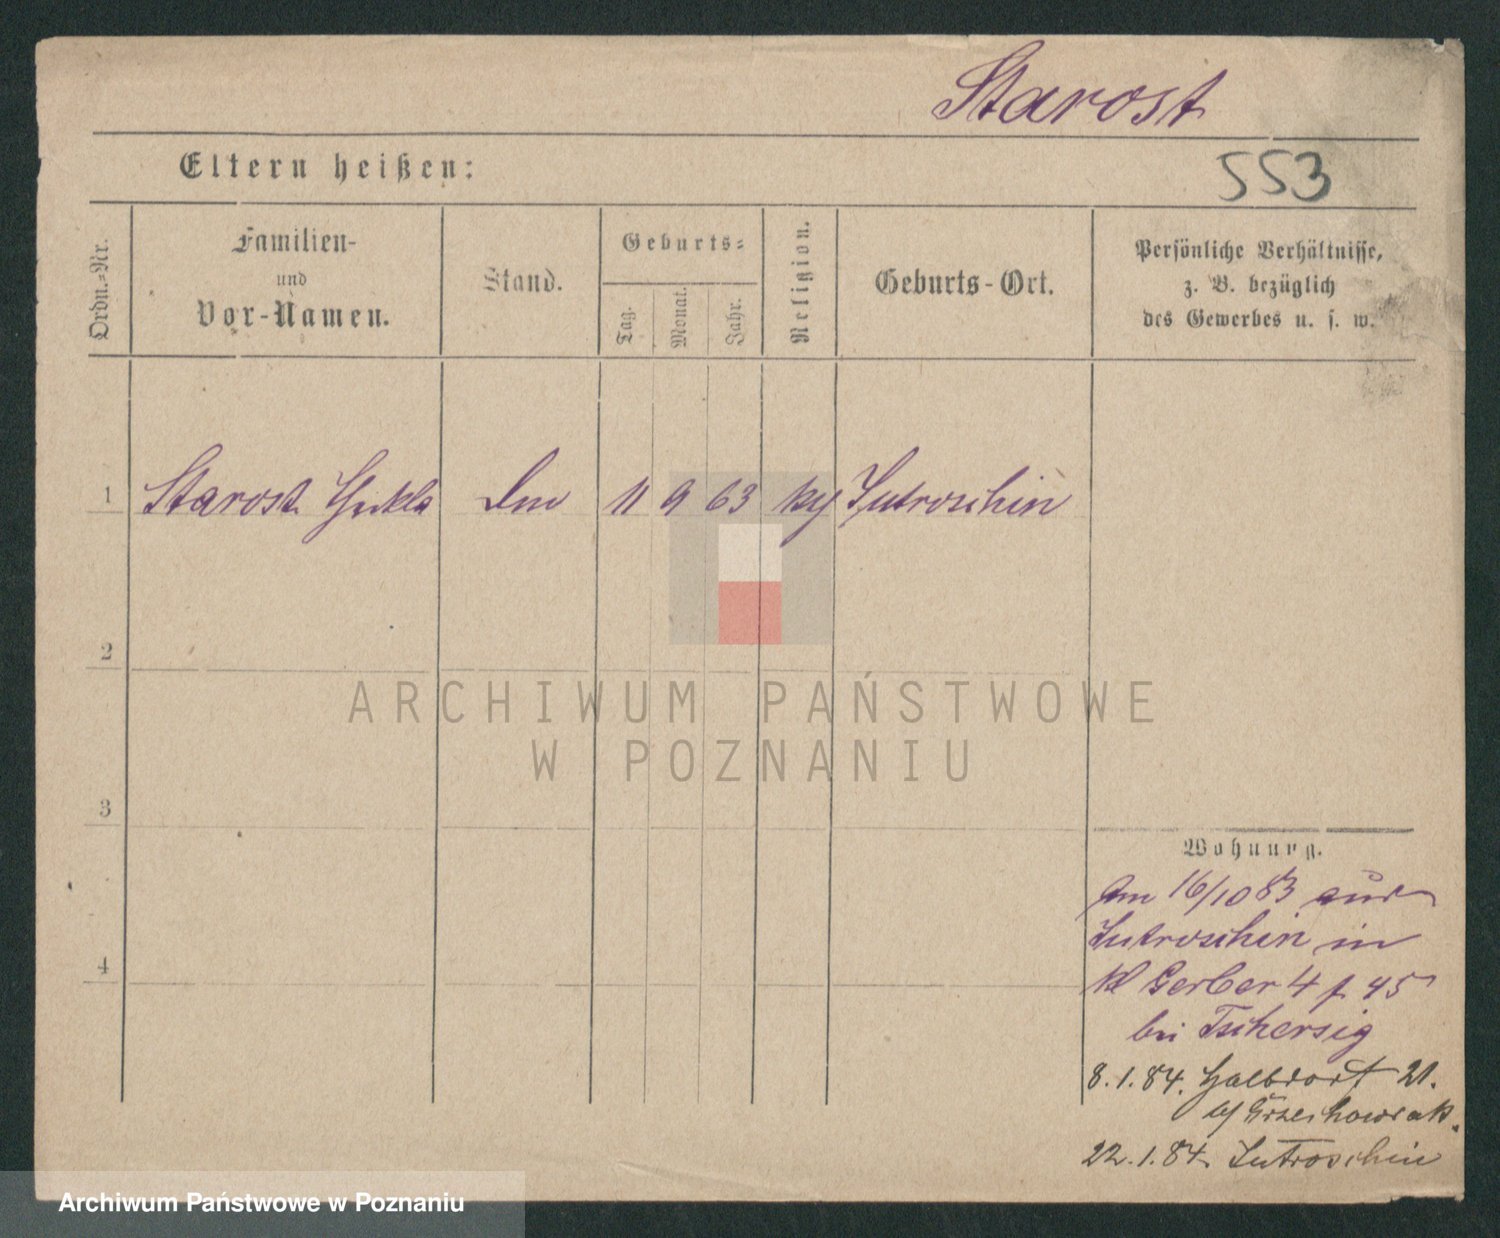 Starost
Eltern heißen:
553
Ordn.-Nr.
Familien-
und
Vor-Namen.
Stand.
Geburts-
Tag.
Monat.
Jahr.
Religion.
Geburts-Ort.
Persönliche Verhältnisse,
z. B. bezüglich
des Gewerbes u. s. w.
1 Starost 11 9 63 Jutroschin
2
3
4
Wohnung.
Am 16/10 83 aus
Jutroschin in
Kl Gerber 4 p 45
bei Tschersig
8.1.84. Halbdorf 21.
b/ Grzeskowiak.
22.1.84. Jutroschin
ARCHIWUM PAŃSTWOWE
W POZNANIU
Archiwum Państwowe w Poznaniu